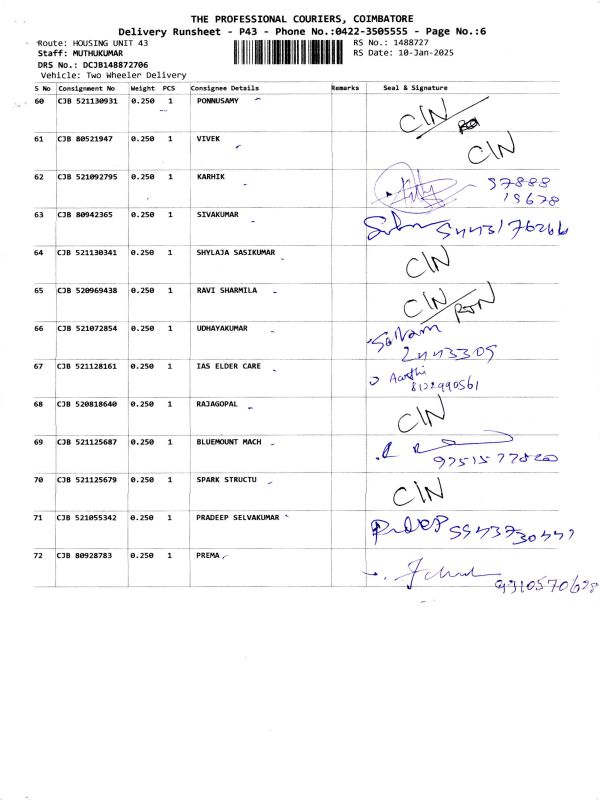 THE PROFESSIONAL COURIERS, COIMBATORE
Delivery Runsheet - P43 - Phone No.:0422-3505555 - Page No.:6
Route: HOUSING UNIT 43 RS No.: 1488727
Staff: MUTHUKUMAR RS Date: 10-Jan-2025
DRS No.: DCJB148872706
Vehicle: Two Wheeler Delivery
S No Consignment No Weight PCS Consignee Details Remarks Seal & Signature
60 CJB 521130931 0.250 1 PONNUSAMY CIN
61 CJB 80521947 0.250 1 VIVEK CIN
62 CJB 521092795 0.250 1 KARHIK 97888
19678
63 CJB 80942365 0.250 1 SIVAKUMAR
64 CJB 521130341 0.250 1 SHYLAJA SASIKUMAR CIN
65 CJB 520969438 0.250 1 RAVI SHARMILA CIN/RTN
66 CJB 521072854 0.250 1 UDHAYAKUMAR
67 CJB 521128161 0.250 1 IAS ELDER CARE Aarthi
8122990561
68 CJB 520818640 0.250 1 RAJAGOPAL CIN
69 CJB 521125687 0.250 1 BLUEMOUNT MACH
70 CJB 521125679 0.250 1 SPARK STRUCTU CIN
71 CJB 521055342 0.250 1 PRADEEP SELVAKUMAR
72 CJB 80928783 0.250 1 PREMA